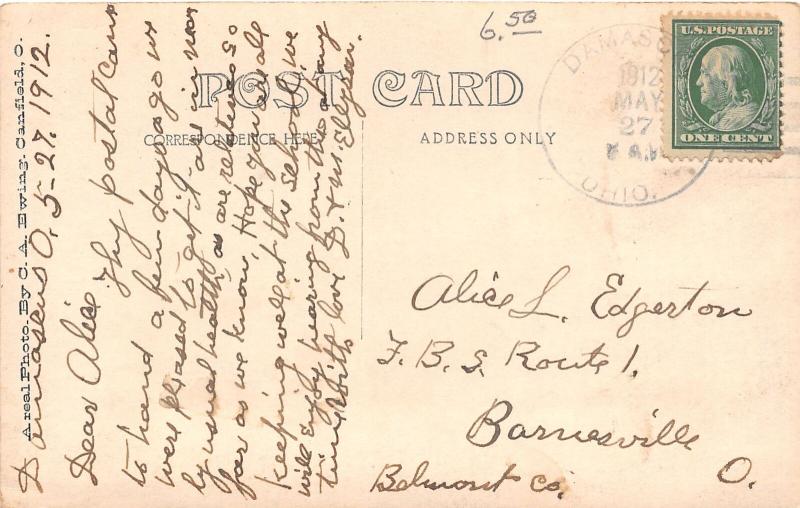 6.50
DAMASCUS
1912
MAY
27
A.M.
OHIO.
U.S. POSTAGE
ONE CENT
POST CARD
CORRESPONDENCE HERE
ADDRESS ONLY
A real Photo. By C. A. Ewing. Canfield, O.
Damascus O. 5-27. 1912.
Dear Alice Thy postal came
to hand a few days ago we
were pleased to get it all in near
ly usual health as are relatives so
far as we know. Hope you are all
keeping well at the School. we
will enjoy hearing from thee any
time With love D. & M. Ellyson.
Alice L. Edgerton
F. B. S. Route 1.
Barnesville
Belmont Co. O.